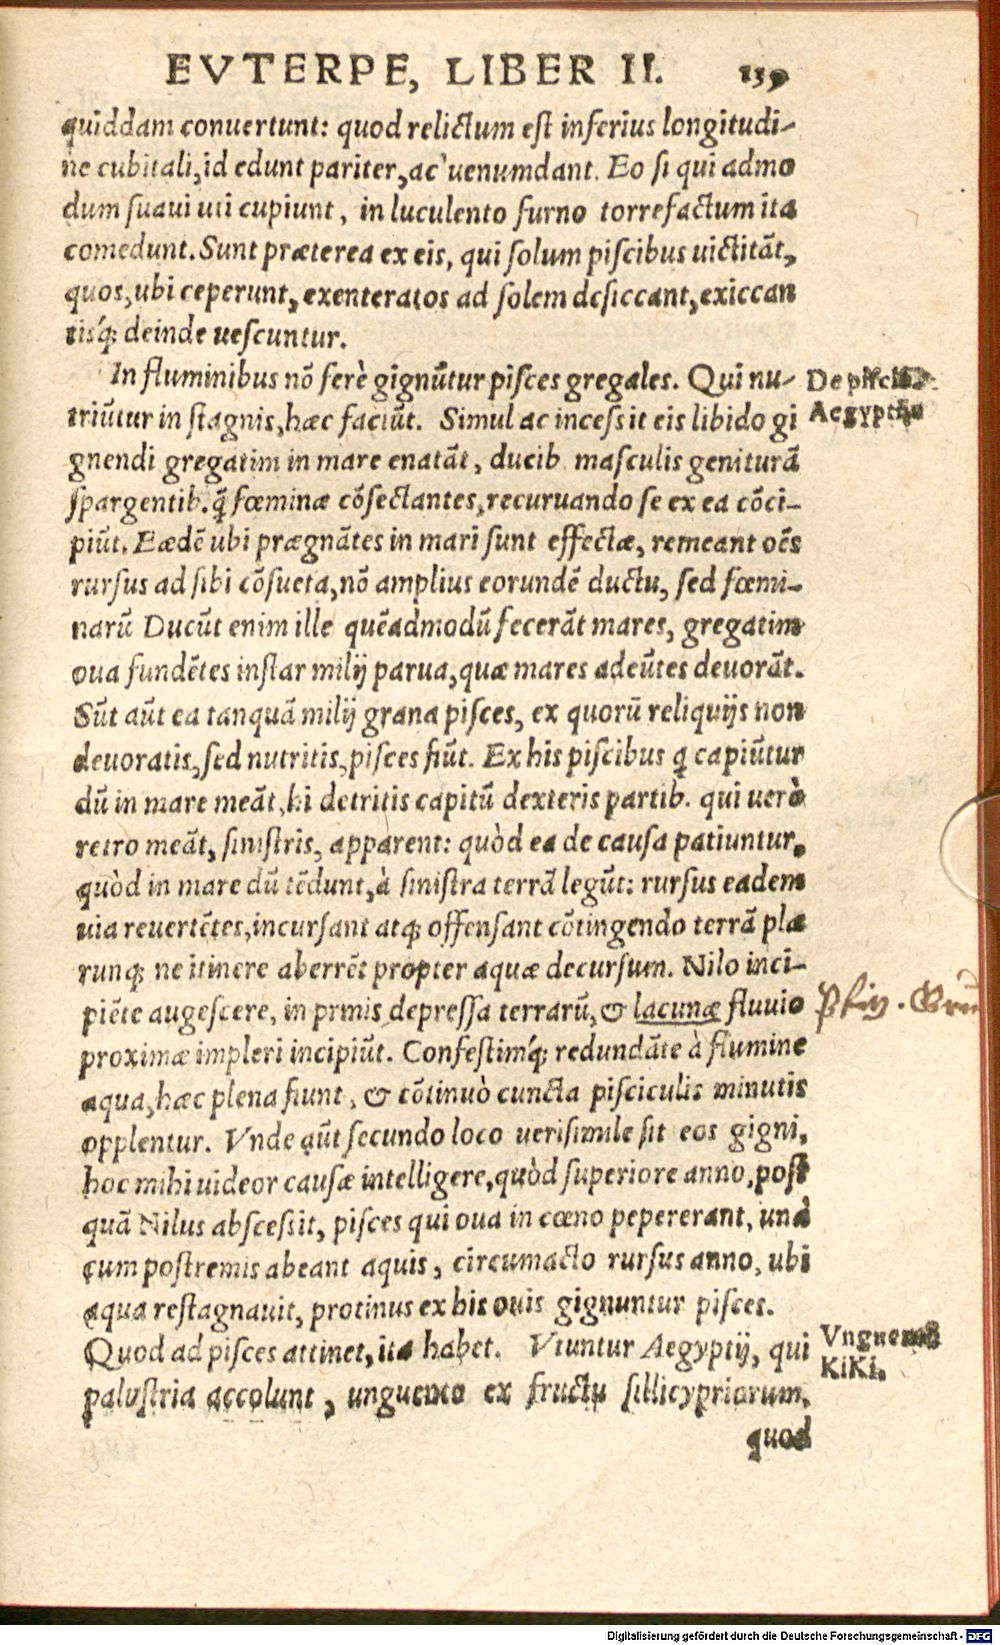 EVTERPE, LIBER II. 139
quiddam conuertunt: quod relictum est inferius longitudi-
ne cubitali, id edunt pariter, ac uenumdant. Eo si qui admo
dum suaui uti cupiunt, in luculento furno torrefactum ita
comedunt. Sunt præterea ex eis, qui solum piscibus uictitāt,
quos, ubi ceperunt, exenteratos ad solem desiccant, exiccan
tisq́; deinde uescuntur.
In fluminibus nō ferè gignūtur pisces gregales. Qui nu-
De piscib.
triūtur in stagnis, hæc faciūt. Simul ac incessit eis libido gi
Aegyptiis
gnendi gregatim in mare enatāt, ducib. masculis geniturā
spargentib. q̄ fœminæ cōsectantes, recuruando se ex ea cōci-
piūt. Eædē ubi prægnātes in mari sunt effectæ, remeant oēs
rursus ad sibi cōsueta, nō amplius eorundē ductu, sed fœmi-
narū Ducūt enim ille quēadmodū fecerāt mares, gregatim
oua fundētes instar milij parua, quæ mares adeūtes deuorāt.
Sūt aūt ea tanquā milij grana pisces, ex quorū reliquijs non
deuoratis, sed nutritis, pisces fiūt. Ex his piscibus q̨ capiūtur
dū in mare meāt, hi detritis capitū dexteris partib. qui uerò
retro meāt, sinistris, apparent: quòd ea de causa patiuntur,
quòd in mare dū tēdunt, à sinistra terrā legūt: rursus eadem
uia reuertētes, incursant atq; offensant cōtingendo terrā plæ
runq; ne itinere aberrēt propter aquæ decursum. Nilo inci-
piēte augescere, in prmis depressa terrarū, & lacunæ fluuio
proximæ impleri incipiūt. Confestimq́; redundāte à flumine
aqua, hæc plena fiunt, & cōtinuò cuncta pisciculis minutis
opplentur. Vnde aūt secundo loco uerisimile sit eos gigni,
hoc mihi uideor causæ intelligere, quòd superiore anno, post
quā Nilus abscessit, pisces qui oua in cœno pepererant, unà
cum postremis abeant aquis, circumacto rursus anno, ubi
aqua restagnauit, protinus ex his ouis gignuntur pisces.
Quod ad pisces attinet, ita habet. Vtuntur Aegyptij, qui
KiKi.
palustria accolunt, unguento ex fructu sillicypriorum,
quod
Digitalisierung gefördert durch die Deutsche Forschungsgemeinschaft - DFG